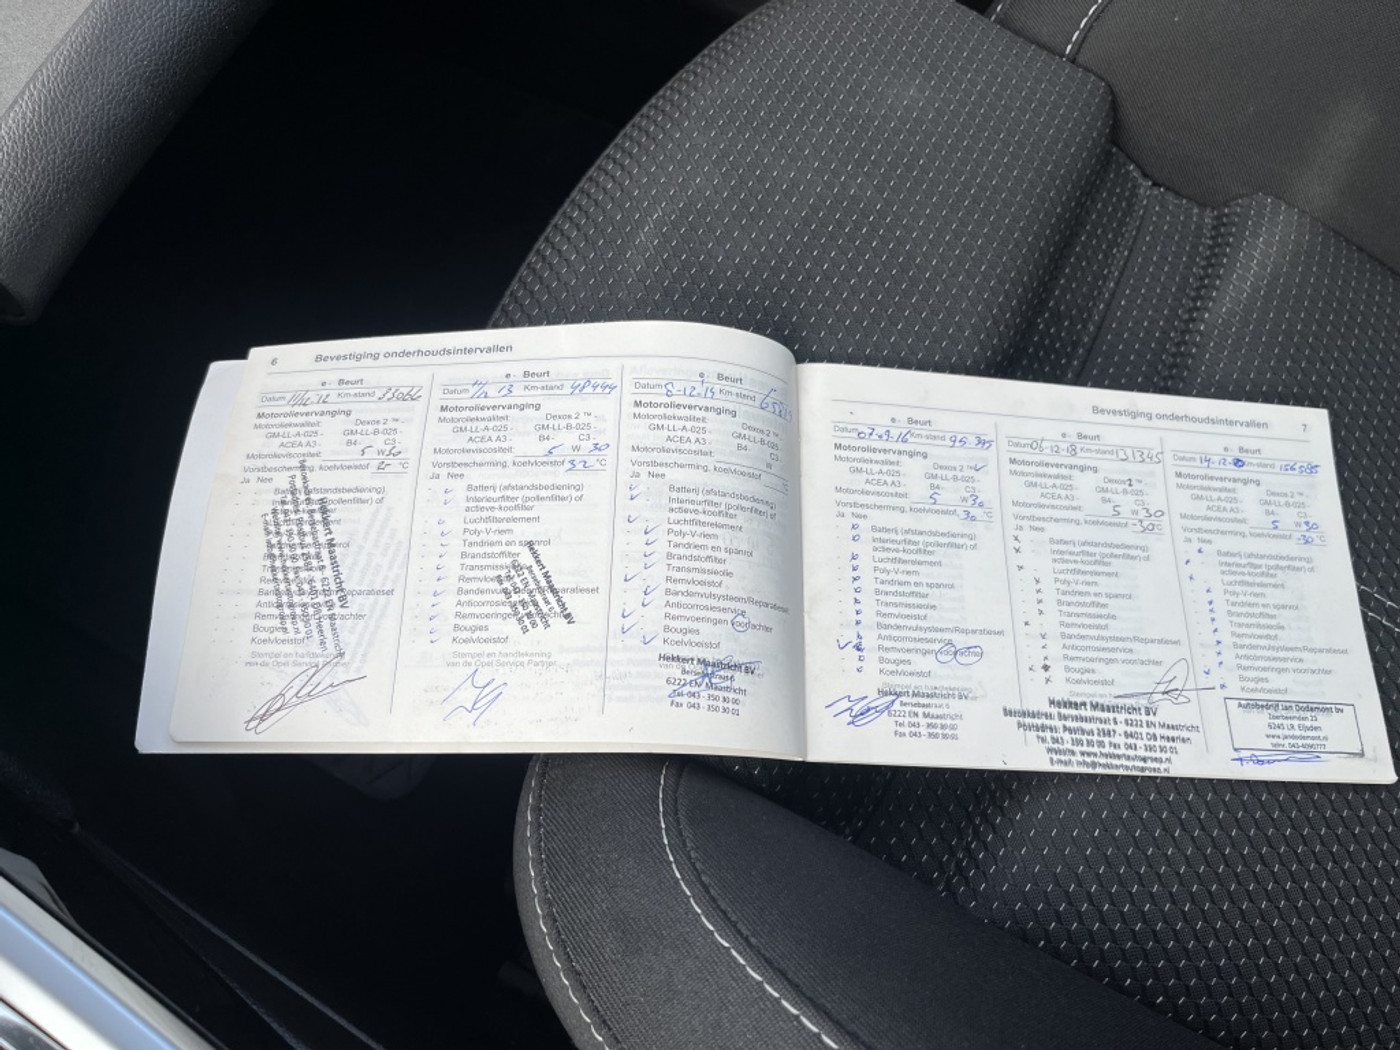 6 Bevestiging onderhoudsintervallen
e - Beurt
Datum 11/12.12 Km-stand 33066
Motorolievervanging
Motoroliekwaliteit: Dexos 2 ™ -
GM-LL-A-025 - GM-LL-B-025 -
ACEA A3 - B4 - C3 -
Motorolieviscositeit: 5 W 30
Vorstbescherming, koelvloeistof °C
Ja Nee
Batterij (afstandsbediening)
Interieurfilter (pollenfilter) of
Bougies
Koelvloeistof
Stempel en handtekening
van de Opel Service Partner
Hekkert Maastricht BV
e - Beurt
Datum 11/12 13 Km-stand 48444
Motorolievervanging
Motoroliekwaliteit: Dexos 2 ™ -
GM-LL-A-025 - GM-LL-B-025 -
ACEA A3 - B4 - C3 -
Motorolieviscositeit: 5 W 30
Vorstbescherming, koelvloeistof 32 °C
Ja Nee
Batterij (afstandsbediening)
Interieurfilter (pollenfilter) of
actieve-koolfilter
Luchtfilterelement
Poly-V-riem
Tandriem en spanrol
Brandstoffilter
Transmissieolie
Remvloeistof
Bandenvulsysteem/Reparatieset
Anticorrosieservice
Remvoeringen
Bougies
Koelvloeistof
Stempel en handtekening
van de Opel Service Partner
Hekkert Maastricht BV
e - Beurt
Datum 8-12-14 Km-stand
Motorolievervanging
Motoroliekwaliteit: Dexos 2 ™ -
GM-LL-A-025 - GM-LL-B-025 -
ACEA A3 - B4 - C3 -
Motorolieviscositeit: W
Vorstbescherming, koelvloeistof °C
Ja Nee
Batterij (afstandsbediening)
Interieurfilter (pollenfilter) of
actieve-koolfilter
Luchtfilterelement
Poly-V-riem
Tandriem en spanrol
Brandstoffilter
Transmissieolie
Remvloeistof
Bandenvulsysteem/Reparatieset
Anticorrosieservice
Remvoeringen voor/achter
Bougies
Koelvloeistof
Hekkert Maastricht BV
Bersebastraat 6
6222 EN Maastricht
Tel. 043 - 350 30 00
Fax 043 - 350 30 01
Bevestiging onderhoudsintervallen 7
e - Beurt
Datum 07-09-16 Km-stand 95.395
Motorolievervanging
Motoroliekwaliteit: Dexos 2 ™
GM-LL-A-025 - GM-LL-B-025 -
ACEA A3 - B4 - C3 -
Motorolieviscositeit: 5 W 30
Vorstbescherming, koelvloeistof 30 °C
Ja Nee
Batterij (afstandsbediening)
Interieurfilter (pollenfilter) of
actieve-koolfilter
Luchtfilterelement
Poly-V-riem
Tandriem en spanrol
Brandstoffilter
Transmissieolie
Remvloeistof
Bandenvulsysteem/Reparatieset
Anticorrosieservice
Remvoeringen voor/achter
Bougies
Koelvloeistof
Hekkert Maastricht BV
Bersebastraat 6
6222 EN Maastricht
Tel. 043 - 350 30 00
Fax 043 - 350 30 01
e - Beurt
Datum 06-12-18 Km-stand 131345
Motorolievervanging
Motoroliekwaliteit: Dexos 2 ™ -
GM-LL-A-025 - GM-LL-B-025 -
ACEA A3 - B4 - C3 -
Motorolieviscositeit: 5 W 30
Vorstbescherming, koelvloeistof -30 °C
Ja Nee
Batterij (afstandsbediening)
Interieurfilter (pollenfilter) of
actieve-koolfilter
Luchtfilterelement
Poly-V-riem
Tandriem en spanrol
Brandstoffilter
Transmissieolie
Remvloeistof
Bandenvulsysteem/Reparatieset
Anticorrosieservice
Remvoeringen voor/achter
Bougies
Koelvloeistof
Hekkert Maastricht BV
Bezoekadres: Bersebastraat 6 - 6222 EN Maastricht
Postadres: Postbus 2387 - 6401 DB Heerlen
Tel. 043 - 350 30 00 Fax 043 - 350 30 01
Website: www.hekkertautogroep.nl
E-mail: info@hekkertautogroep.nl
e - Beurt
Datum 14-12-20 Km-stand 156585
Motorolievervanging
Motoroliekwaliteit: Dexos 2 ™ -
GM-LL-A-025 - GM-LL-B-025 -
ACEA A3 - B4 - C3 -
Motorolieviscositeit: 5 W 30
Vorstbescherming, koelvloeistof -30 °C
Ja Nee
Batterij (afstandsbediening)
Interieurfilter (pollenfilter) of
actieve-koolfilter
Luchtfilterelement
Poly-V-riem
Tandriem en spanrol
Brandstoffilter
Transmissieolie
Remvloeistof
Bandenvulsysteem/Reparatieset
Anticorrosieservice
Remvoeringen voor/achter
Bougies
Koelvloeistof
Autobedrijf Jan Dodemont bv
6245 LR Eijsden
www.jandodemont.nl
telnr. 043-4090777